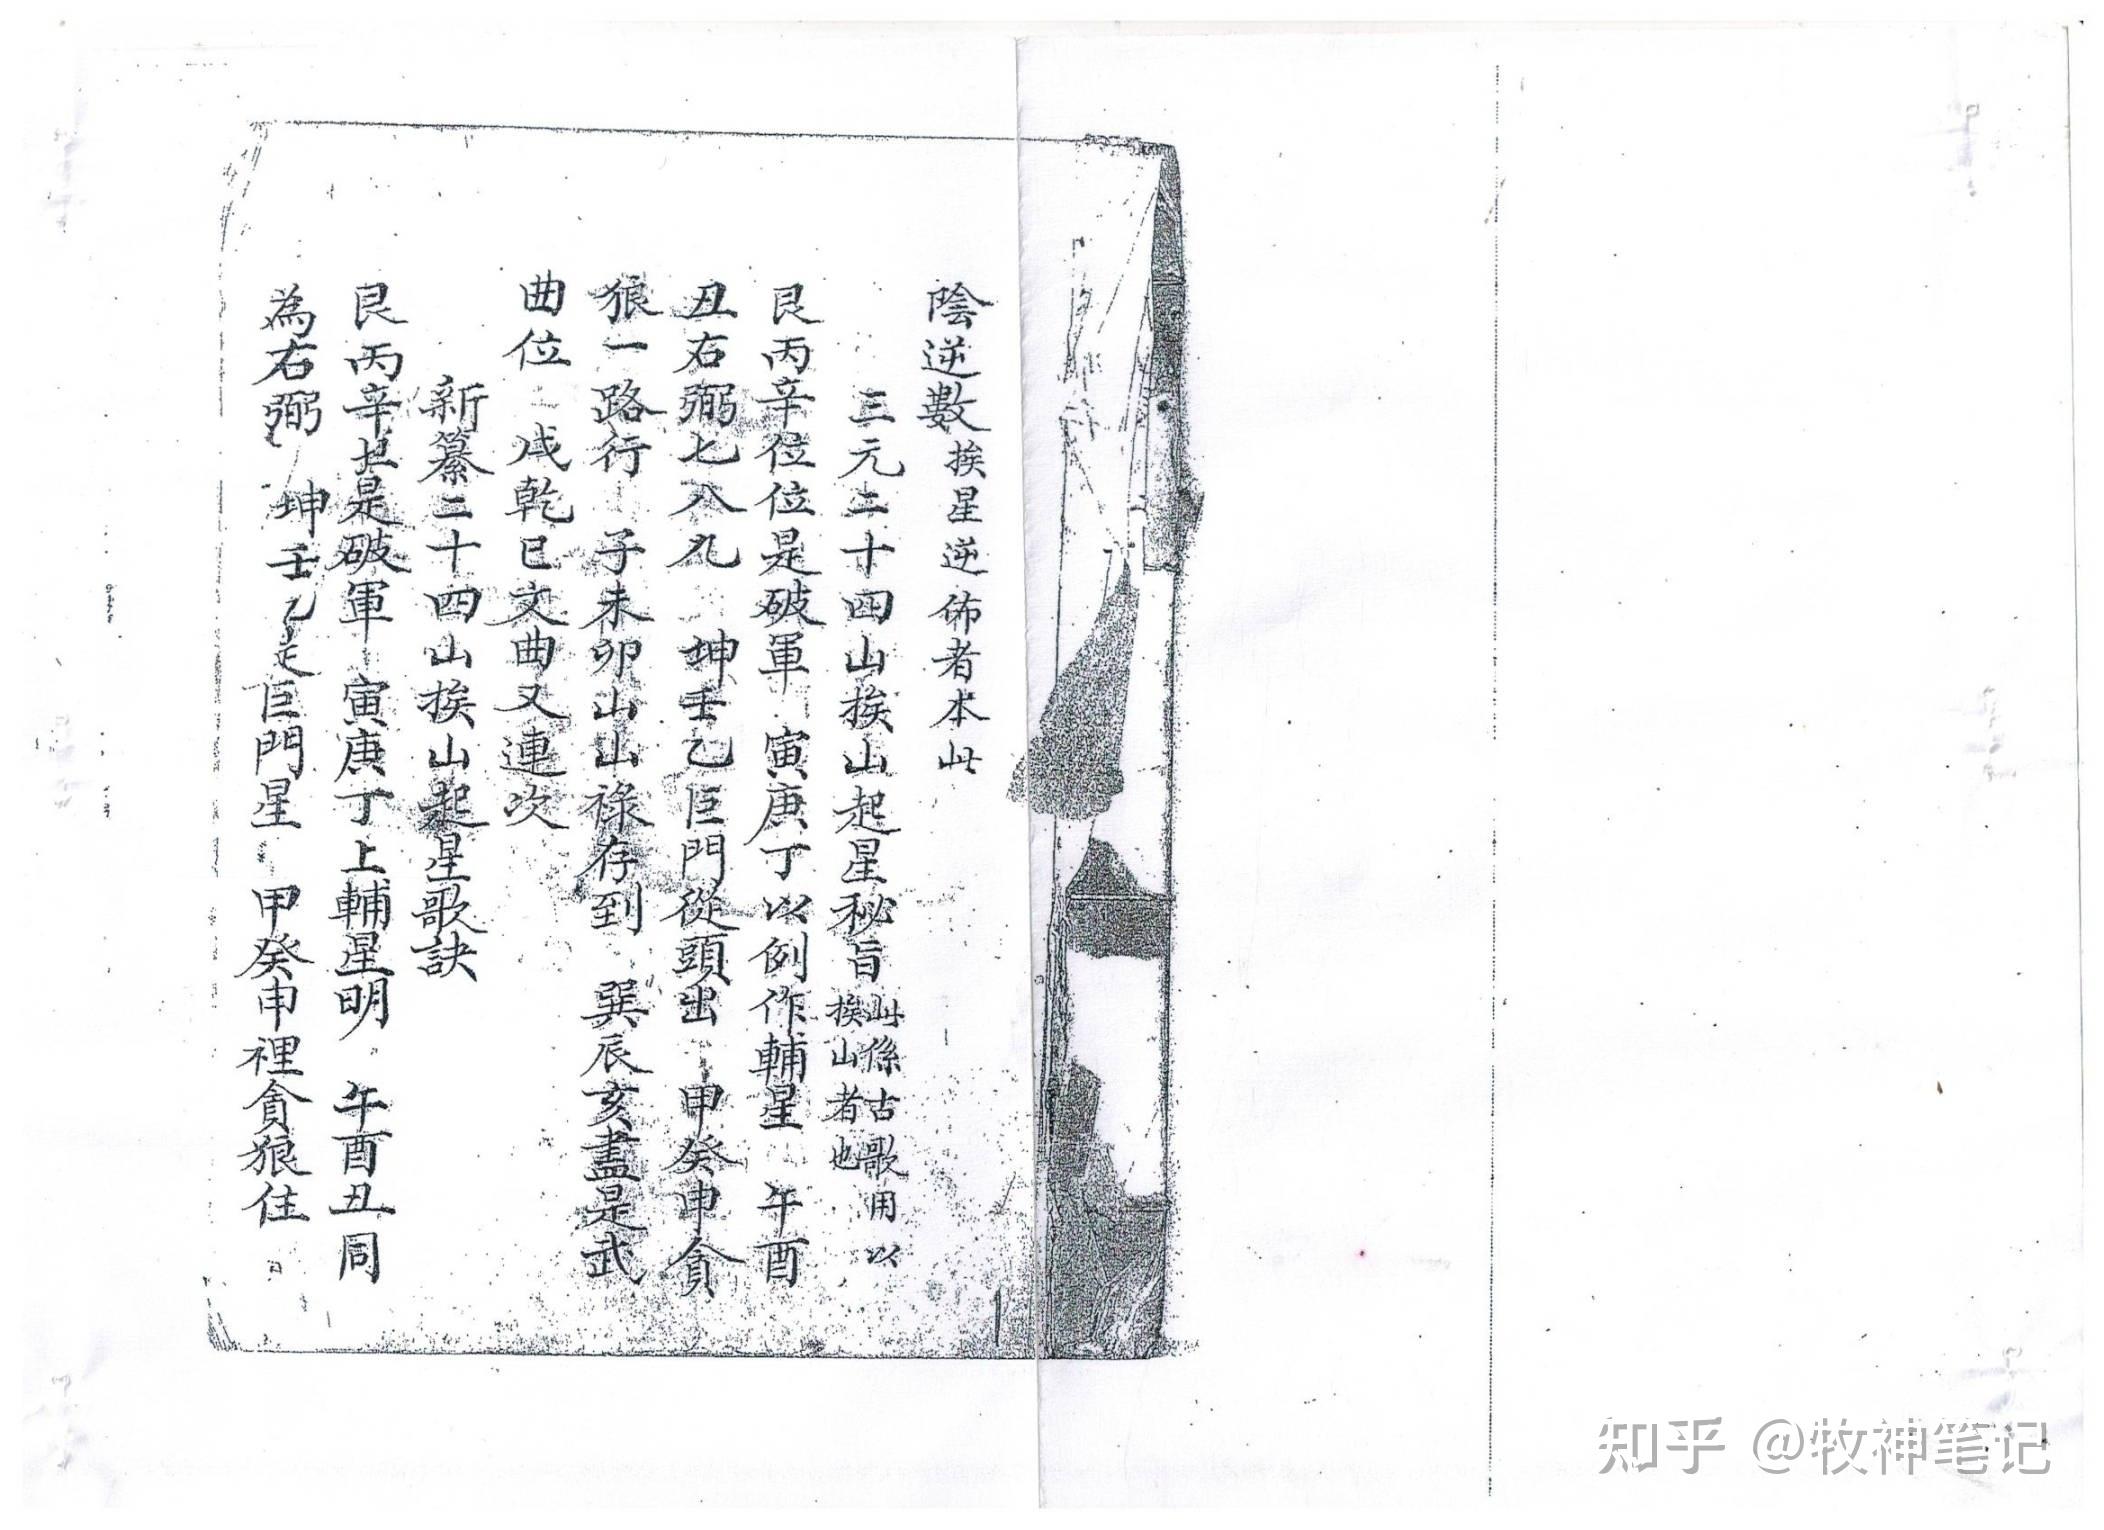 陰逆數挨星逆佈者本此
三元二十四山挨山起星秘旨此係古歌用以挨山者也
艮丙辛位位是破軍 寅庚丁以例作輔星 午酉
丑右弼七八九 坤壬乙巨門從頭出 甲癸申貪
狼一路行 子未卯山山祿存到 巽辰亥盡是武
曲位 戌乾巳文曲又連次
新纂二十四山挨山起星歌訣
艮丙辛是破軍 寅庚丁上輔星明 午酉丑同
為右弼 坤壬乙是巨門星 甲癸申裡貪狼住
知乎 @牧神笔记